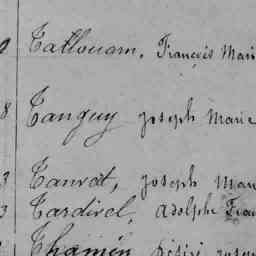 Tallouarn, François Mari
8 Tanguy Joseph Marie
3 Tanvet, Joseph Mari
3 Tardivel, Adolphe Fran
Désiré Joseph